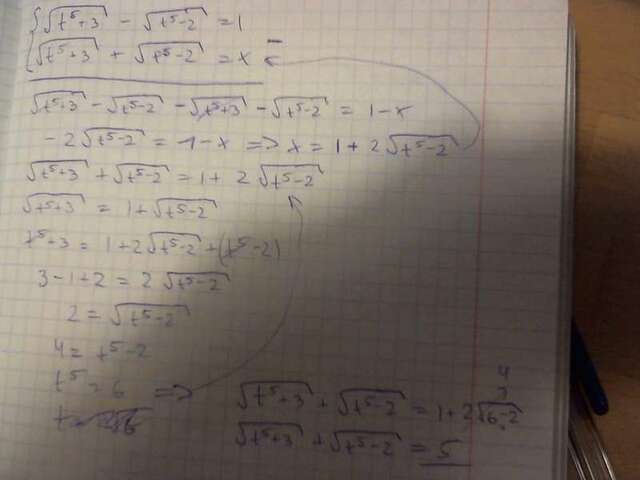 √(t⁵+3) − √(t⁵−2) = 1
√(t⁵+3) + √(t⁵−2) = x
√(t⁵+3) − √(t⁵−2) − √(t⁵+3) − √(t⁵−2) = 1−x
−2√(t⁵−2) = 1−x => x = 1 + 2√(t⁵−2)
√(t⁵+3) + √(t⁵−2) = 1 + 2√(t⁵−2)
√(t⁵+3) = 1 + √(t⁵−2)
t⁵+3 = 1+2√(t⁵−2) + (t⁵−2)
3−1+2 = 2√(t⁵−2)
2 = √(t⁵−2)
4 = t⁵−2
t⁵ = 6 =>
4
√(t⁵+3) + √(t⁵−2) = 1 + 2√(6−2)
√(t⁵+3) + √(t⁵−2) = 5